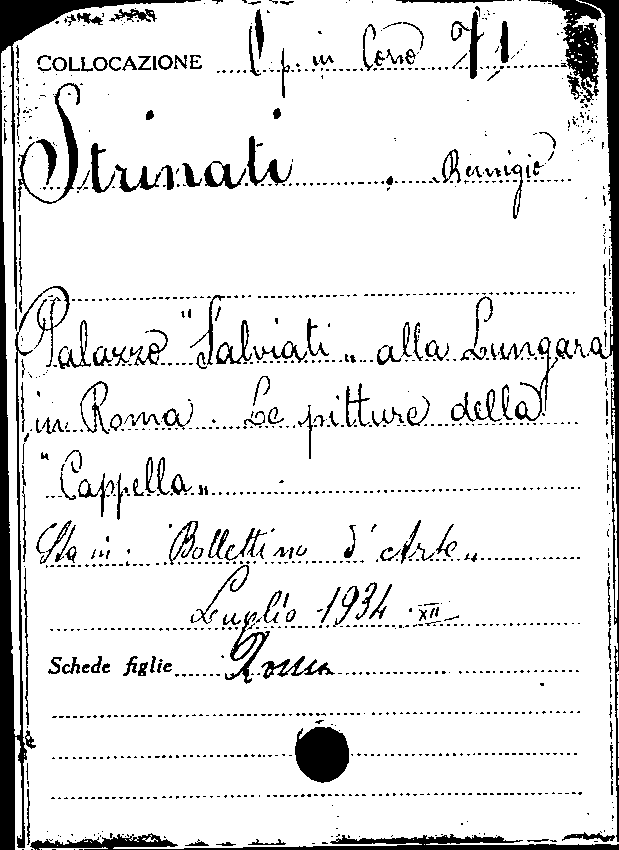 COLLOCAZIONE Op. in Corso 71
Strinati . Remigio
Palazzo "Salviati„ alla Lungara
in Roma. Le pitture della
"Cappella„
Sta in: Bollettino d'Arte„
Luglio 1934 . XII
Schede figlie Roma